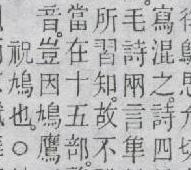 寫混之詩四
毛詩兩言隼
所習知故不
當在十五部
音豈因鳩鷹
祝鳩也○